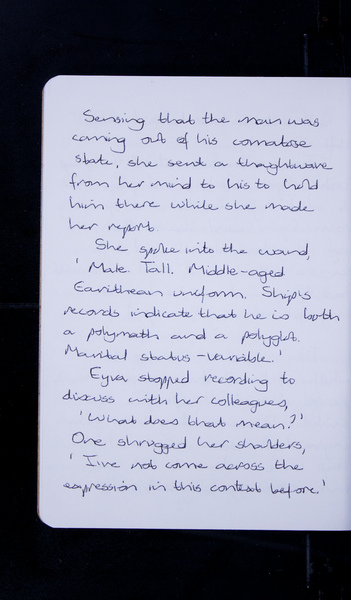 Sensing that the man was
coming out of his comatose
state, she sent a thoughtwave
from her mind to his to hold
him there while she made
her report.
She spoke into the wand,
'Male. Tall. Middle-aged
Earithean uniform. Ship's
records indicate that he is both
a polymath and a polyglot.
Marital status - variable.'
Eyra stopped recording to
discuss with her colleagues,
'What does that mean?'
One shrugged her shoulders,
'I've not come across the
expression in this context before.'